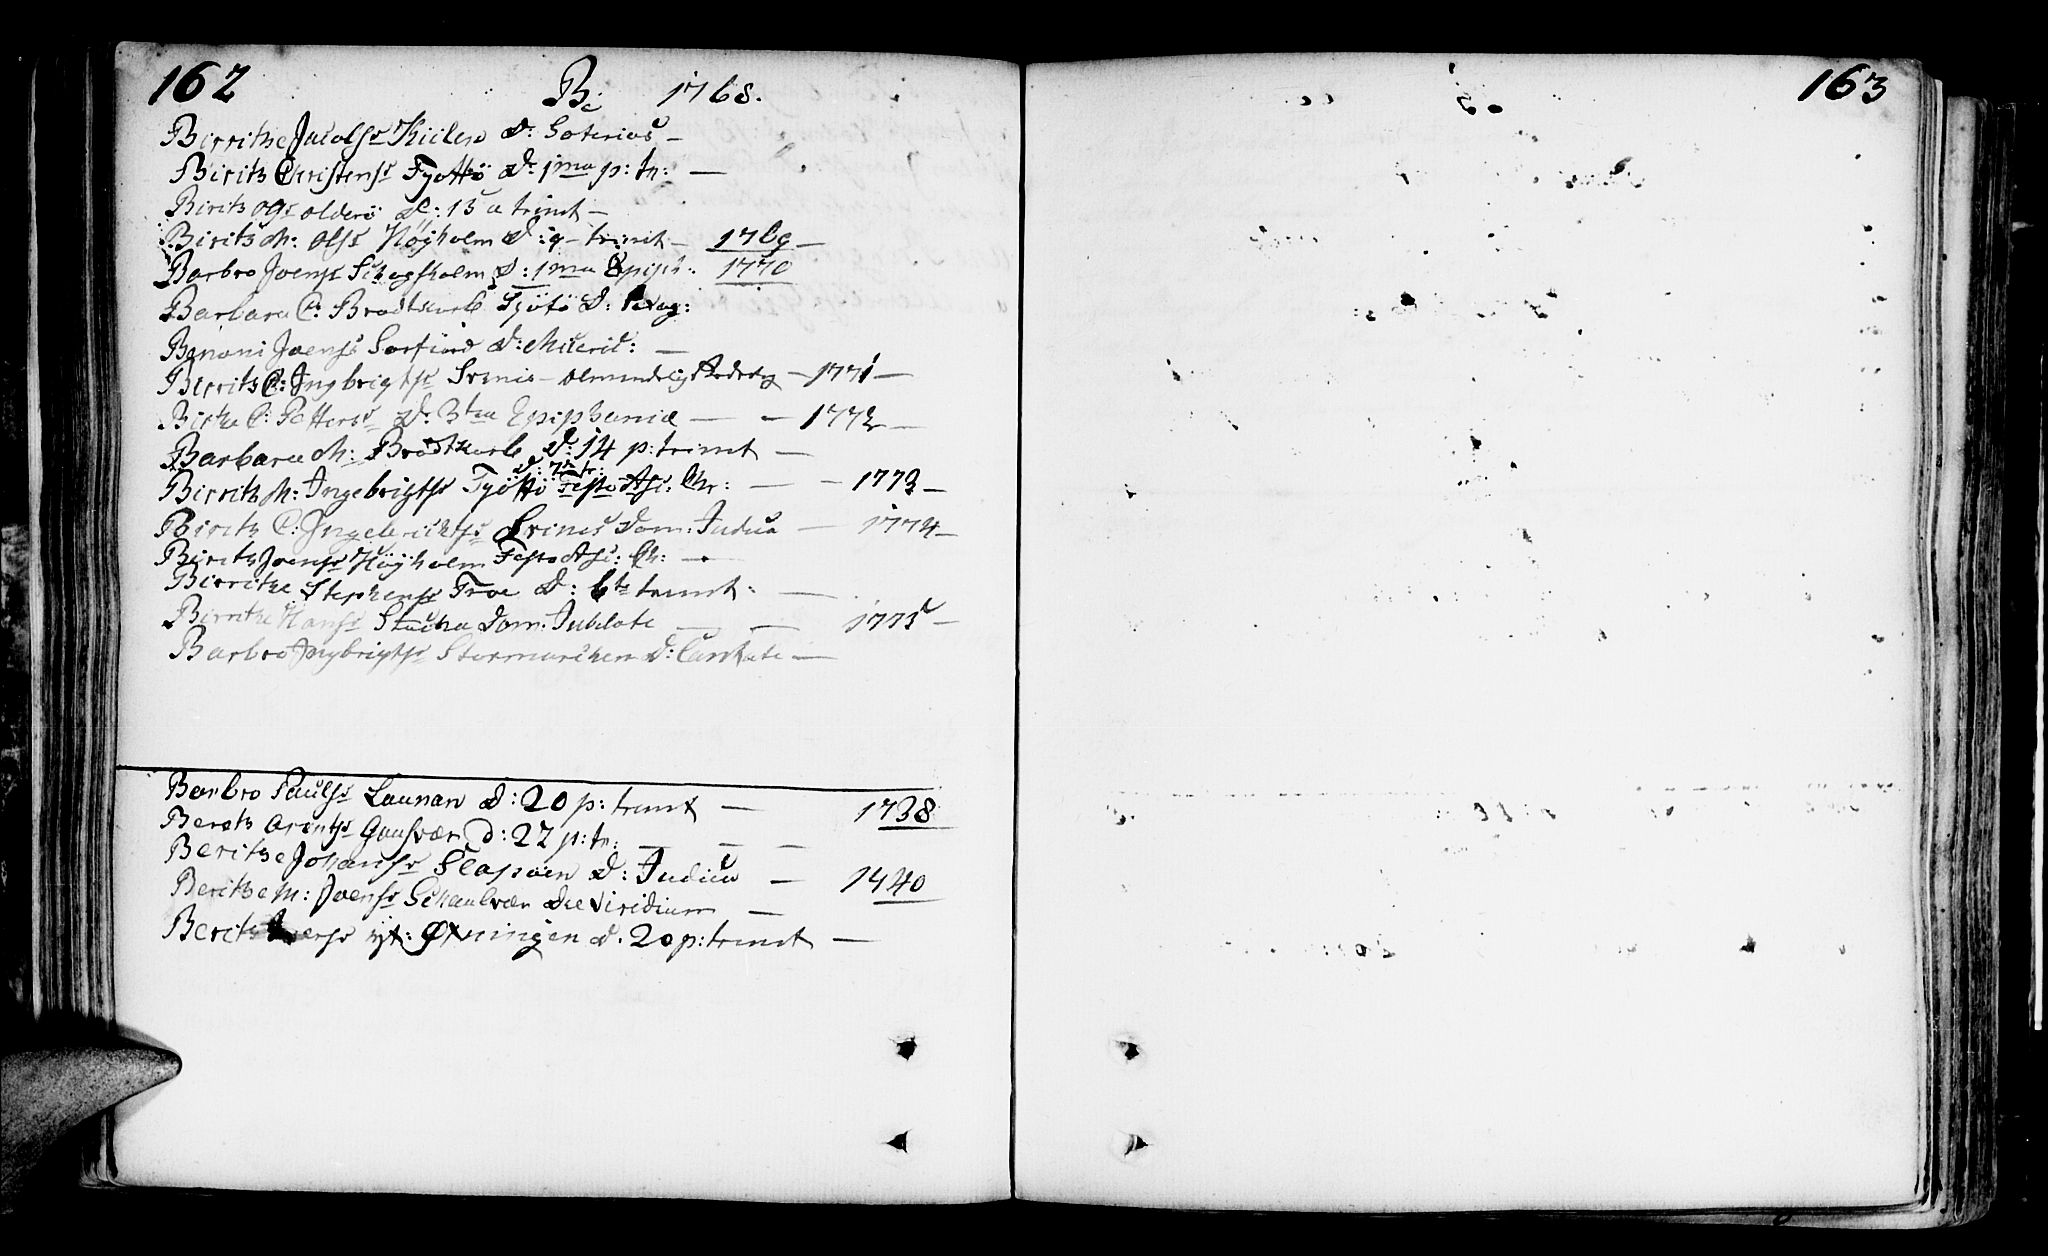 162
B; 1768.
Birrithe Jacobsr Kiilen D: Soterios —
Birith Christensr Tjøttö D: 1ma p: tr: —
Birith Olsr Olderö D: 13 a trinit —
Birith M: Olsr Höyholm D: 9 – trinit — 1769 —
Barbro Joensr Schogsholm D: 1ma Epiph: 1770
Barbara C: Brodtkorb Tjötö D:
Benoni Joens Sorfiord D: Miseric: —
Birrith C: Ingbrigtsr Svinis — 1771 —
Birthe C: Pettersr D: 3tia Epiphaniæ — — 1772 —
Barbara M: Brodtkorb D: 14 p: trinit —
D: 7 tr:
Birrith M: Ingebrigtsr Tjöttö Festo Asc: Chr: — — 1773 —
Birith C: Ingebrichtsr Svines Dom: Judica — 1774 —
Birith Joensr Höyholm Festo Asc: Ch: —
Birrithe Stephensr Troe D: 6te trinit: —
Birrithe Hansr Stocka Dom: Jubilate — — 1775 —
Barbro Ingbrigtsr Stormarchen D: Cantate —
Barbro Paulsr Launan D: 20 p: trinit — 1738
Berith Arentsr Gaasvær D: 22 p: tr: — — —
Berithe Johansr Slapøen D: Judica — 1740
Berithe M: Joensr Schaalvær Die Viridium —
Berith Iversr yt: Øxningen D. 20 p: trinit —
163